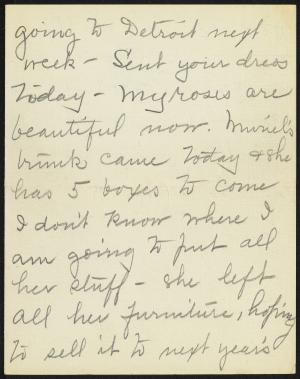 going to Detroit next
week - Sent your dress
today - My roses are
beautiful now. Muriel's
trunk came today & she
has 5 boxes to come
I don't know where I
am going to put all
her stuff - she left
all her furniture, hoping
to sell it to next year's